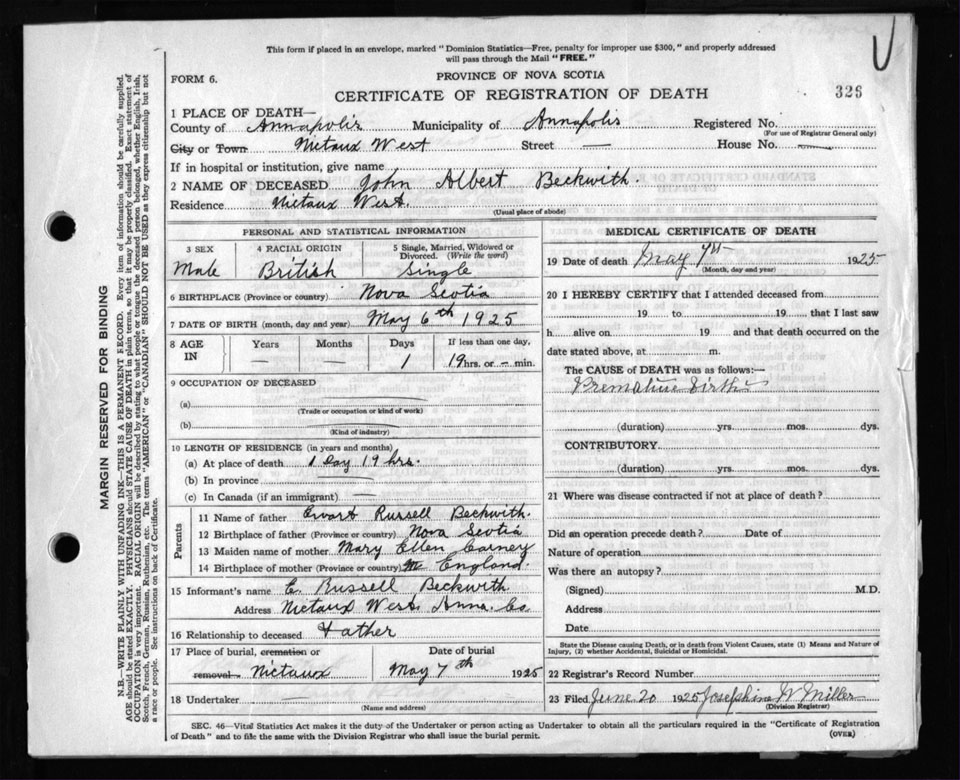 This form if placed in an envelope, marked "Dominion Statistics—Free, penalty for improper use $300," and properly addressed
will pass through the Mail "FREE."
FORM 6.
PROVINCE OF NOVA SCOTIA
CERTIFICATE OF REGISTRATION OF DEATH
326
1 PLACE OF DEATH—
County of Annapolis Municipality of Annapolis Registered No.
(For use of Registrar General only)
City or Town Nictaux West Street — House No. —
If in hospital or institution, give name
2 NAME OF DECEASED John Albert Beckwith.
Residence Nictaux West.
(Usual place of abode)
PERSONAL AND STATISTICAL INFORMATION
3 SEX 4 RACIAL ORIGIN 5 Single, Married, Widowed or
Divorced. (Write the word)
Male British Single
6 BIRTHPLACE (Province or country) Nova Scotia
7 DATE OF BIRTH (month, day and year) May 6th 1925
8 AGE IN Years Months Days If less than one day,
— — 1 19 hrs. or — min.
9 OCCUPATION OF DECEASED
(a)
(Trade or occupation or kind of work)
(b)
(Kind of industry)
10 LENGTH OF RESIDENCE (in years and months)
(a) At place of death 1 Day 19 hrs.
(b) In province —
(c) In Canada (if an immigrant) —
Parents
11 Name of father Ewart Russell Beckwith.
12 Birthplace of father (Province or country) Nova Scotia
13 Maiden name of mother Mary Ellen Carney
14 Birthplace of mother (Province or country) England.
15 Informant's name E. Russell Beckwith
Address Nictaux West. Anna. Co.
16 Relationship to deceased Father
17 Place of burial, cremation or Date of burial
removal Nictaux May 7th 1925
18 Undertaker —
(Name and address)
MEDICAL CERTIFICATE OF DEATH
19 Date of death May 7th 1925
(Month, day and year)
20 I HEREBY CERTIFY that I attended deceased from
19 to 19 that I last saw
h alive on 19 and that death occurred on the
date stated above, at m.
The CAUSE of DEATH was as follows:—
Premature birth
(duration) yrs. mos. dys.
CONTRIBUTORY
(duration) yrs. mos. dys.
21 Where was disease contracted if not at place of death?
Did an operation precede death? Date of
Nature of operation
Was there an autopsy?
(Signed) M.D.
Address
Date
State the Disease causing Death, or in Death from Violent Causes, state (1) Means and Nature of
Injury, (2) whether Accidental, Suicidal or Homicidal.
22 Registrar's Record Number
23 Filed June 20 1925 Josephine W Miller
(Division Registrar)
SEC. 46—Vital Statistics Act makes it the duty of the Undertaker or person acting as Undertaker to obtain all the particulars required in the "Certificate of Registration
of Death" and to file the same with the Division Registrar who shall issue the burial permit.
(OVER)
MARGIN RESERVED FOR BINDING
N.B.—WRITE PLAINLY WITH UNFADING INK—THIS IS A PERMANENT RECORD. Every item of information should be carefully supplied.
AGE should be stated EXACTLY. PHYSICIANS should STATE CAUSE OF DEATH in plain terms, so that it may be properly classified. Exact statement of
OCCUPATION is very important. RACIAL ORIGIN will be described by stating to what people or tongue the deceased person belonged, whether English, Irish,
Scotch, French, German, Russian, Ruthenian, etc. The terms "AMERICAN" or "CANADIAN" SHOULD NOT BE USED as they express citizenship but not
a race or people. See instructions on back of Certificate.